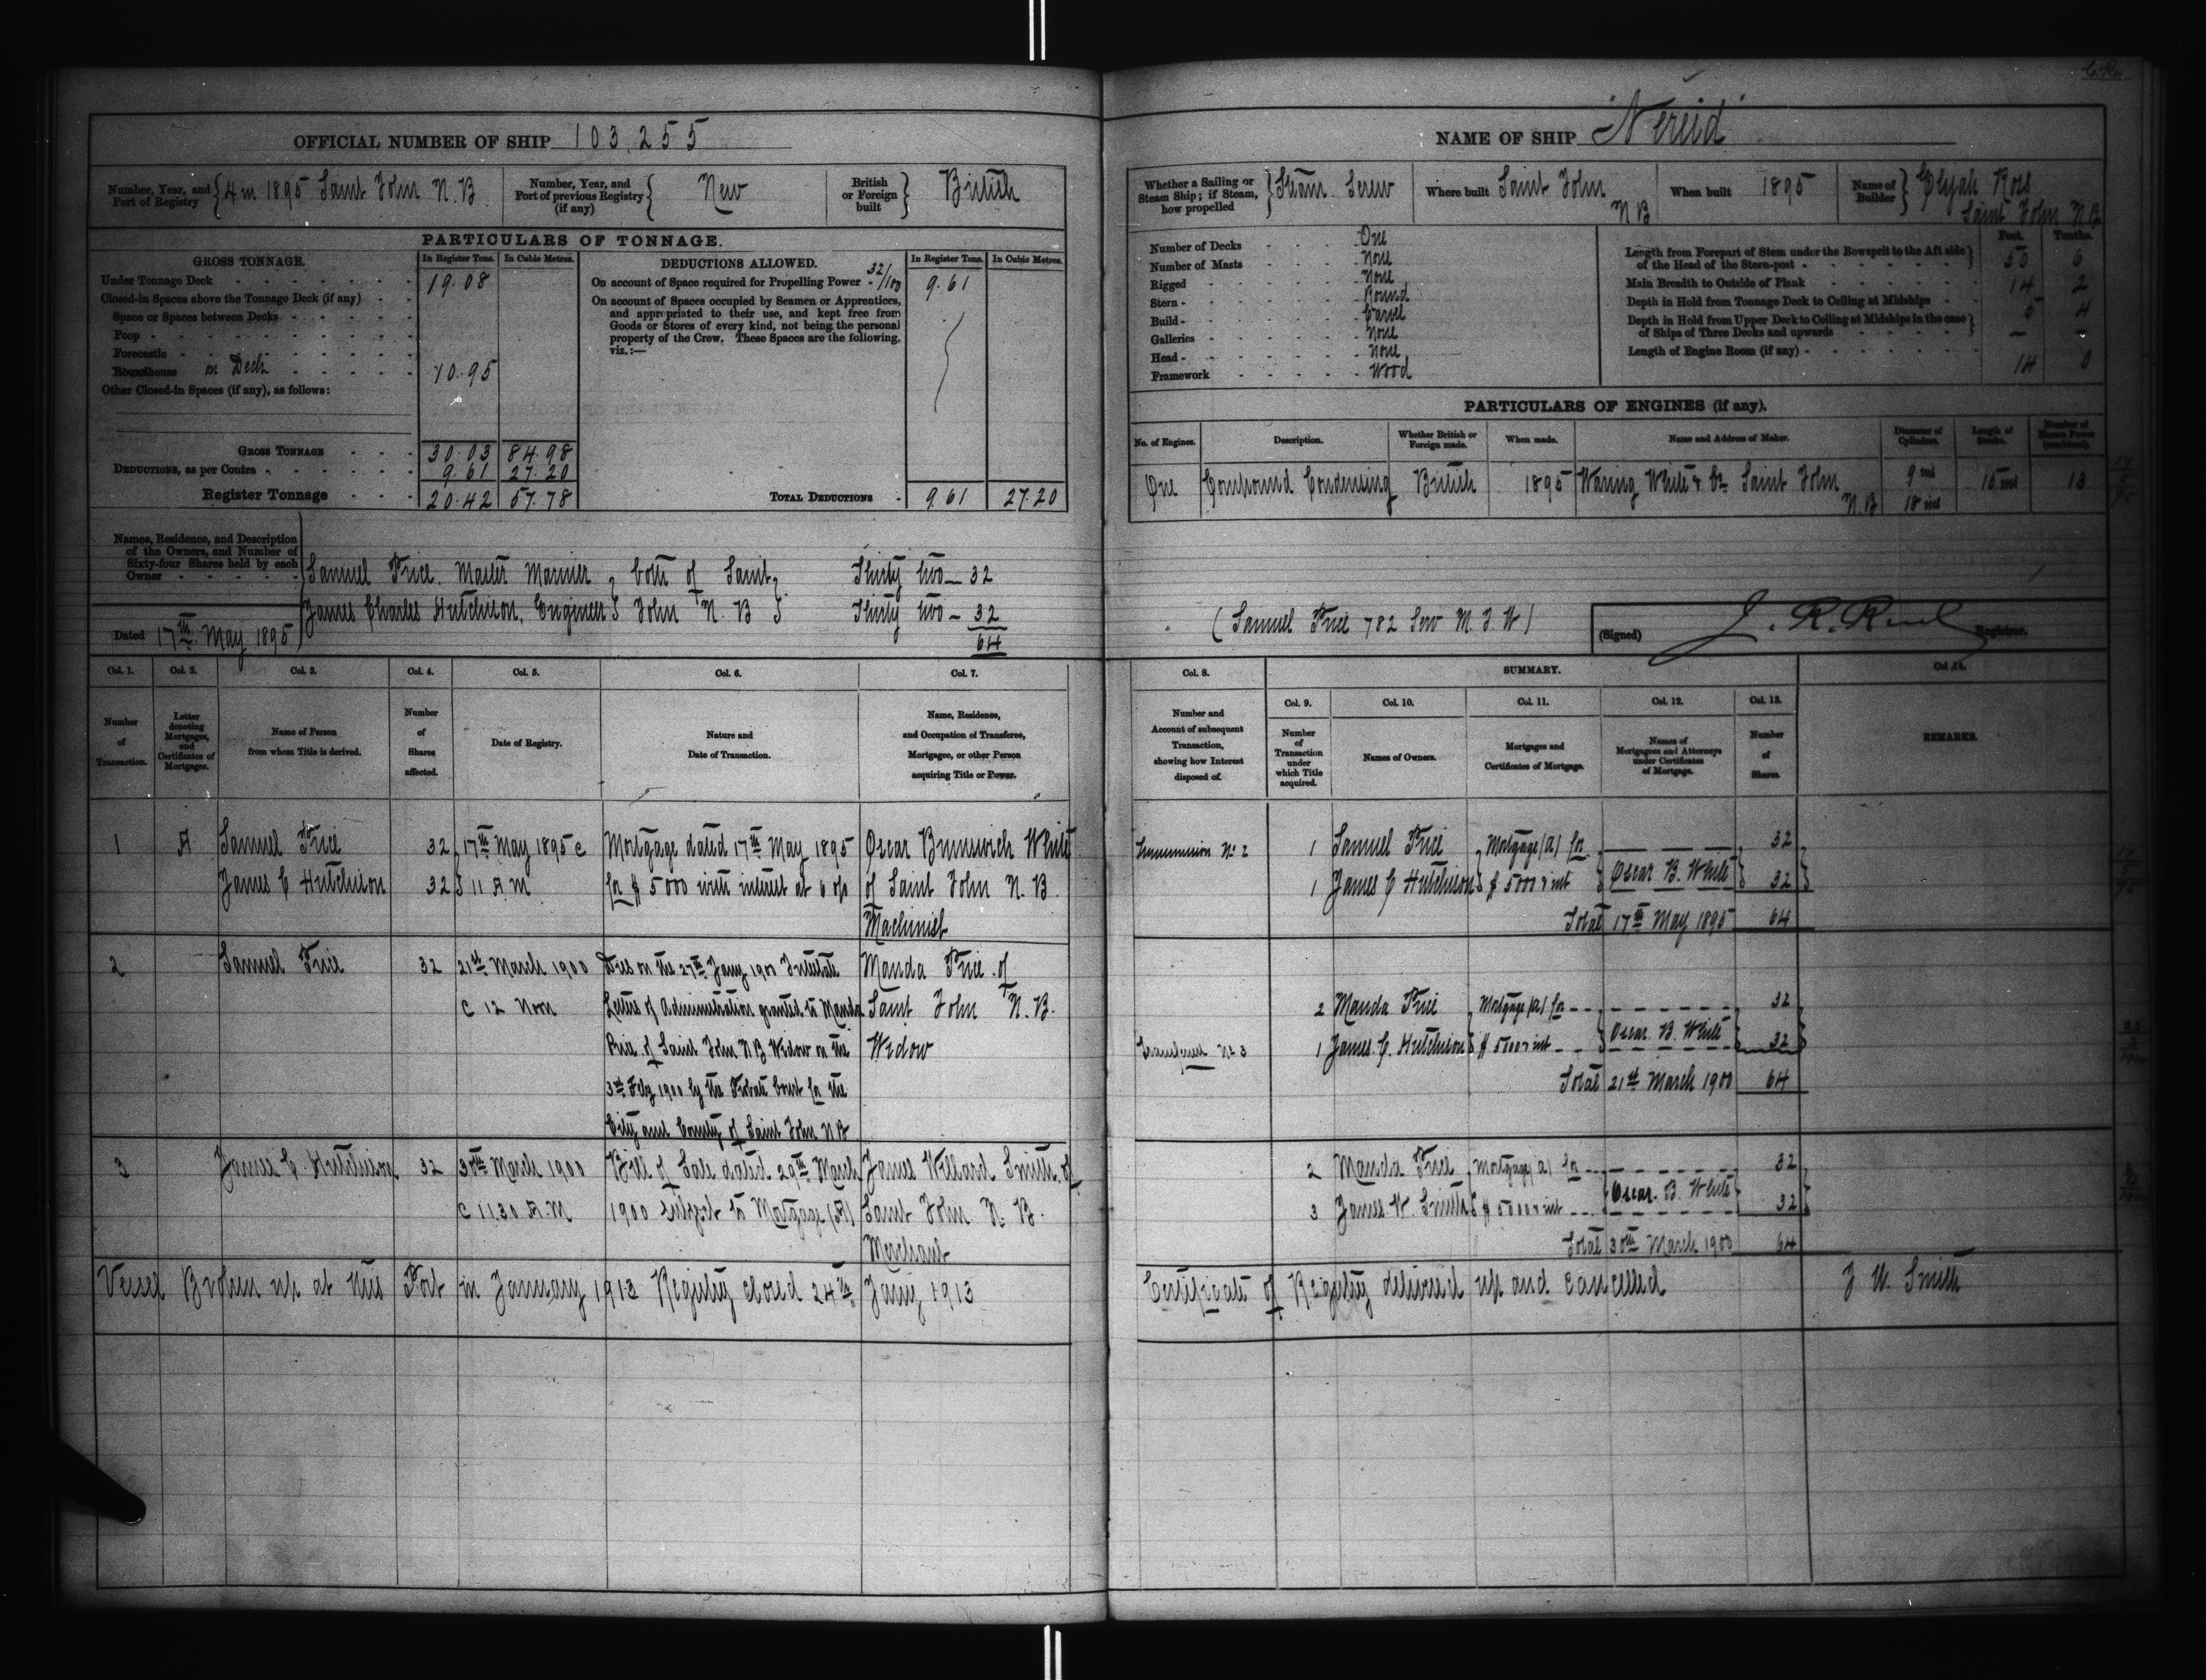 OFFICIAL NUMBER OF SHIP 103,255
Number, Year, and Port of Registry { 4 in 1895 Saint John N.B
Number, Year, and Port of previous Registry (if any) { New
British or Foreign built } British
PARTICULARS OF TONNAGE.
GROSS TONNAGE. In Register Tons. In Cubic Metres.
Under Tonnage Deck 19.08
Closed-in Spaces above the Tonnage Deck (if any)
Space or Spaces between Decks
Poop
Forecastle
Roundhouse on Deck 10.95
Other Closed-in Spaces (if any), as follows:
GROSS TONNAGE 30.03 84.98
DEDUCTIONS, as per Contra 9.61 27.20
Register Tonnage 20.42 57.78
DEDUCTIONS ALLOWED. In Register Tons. In Cubic Metres.
On account of Space required for Propelling Power 32/100 9.61
On account of Spaces occupied by Seamen or Apprentices,
and appropriated to their use, and kept free from
Goods or Stores of every kind, not being the personal
property of the Crew. These Spaces are the following,
viz.:—
TOTAL DEDUCTIONS 9.61 27.20
Names, Residence, and Description
of the Owners, and Number of
Sixty-four Shares held by each
Owner
Samuel Price. Master Mariner } both of Saint } Thirty two — 32
James Charles Hutchison, Engineer } John N.B } Thirty two — 32
64
Dated 17th May 1895
Col. 1. Col. 2. Col. 3. Col. 4. Col. 5. Col. 6. Col. 7.
Number of Transaction.
Letter denoting Mortgages, and Certificates of Mortgages.
Name of Person from whom Title is derived.
Number of Shares affected.
Date of Registry.
Nature and Date of Transaction.
Name, Residence, and Occupation of Transferee, Mortgagee, or other Person acquiring Title or Power.
1 A Samuel Price 32 } 17th May 1895 @ Mortgage dated 17th May 1895 Oscar Brunswick White
James C Hutchison 32 } 11 A M for $ 5000 with interest at 6 o/o of Saint John N.B.
Machinist
2 Samuel Price 32 21st March 1900 Died on the 27th Jany 1900 Intestate Manda Price of
@ 12 Noon Letters of Administration granted to Manda Saint John N.B.
Price of Saint John N B Widow on the Widow
3rd Feby 1900 by the Probate Court for the
City and County of Saint John N B
3 James C. Hutchison 32 30th March 1900 Bill of Sale dated 29th March James Willard Smith of
@ 11.30 A.M 1900 subject to Mortgage (A) Saint John N.B.
Merchant
Vessel Broken up at this Port in January 1913 Registry closed 24th Jany 1913
NAME OF SHIP "Nereid"
Whether a Sailing or Steam Ship; if Steam, how propelled } Steam. Screw
Where built Saint John N B
When built 1895
Name of Builder } Elijah Ross
Saint John N.B
Number of Decks One
Number of Masts None
Rigged None
Stern Round
Build Carvel
Galleries None
Head None
Framework Wood
Feet. Tenths.
Length from Forepart of Stem under the Bowsprit to the Aft side
of the Head of the Stern-post 50 6
Main Breadth to Outside of Plank 14 2
Depth in Hold from Tonnage Deck to Ceiling at Midships 5 4
Depth in Hold from Upper Deck to Ceiling at Midships in the case
of Ships of Three Decks and upwards —
Length of Engine Room (if any) 14 0
PARTICULARS OF ENGINES (if any).
No. of Engines. Description. Whether British or Foreign made. When made. Name and Address of Maker. Diameter of Cylinders. Length of Stroke. Number of Horse Power (combined).
One Compound Condensing British 1895 Waring White & Co Saint John 9 ins 15 ins 13
N.B 18 ins
(Samuel Price 782 Serv M. I. W)
(Signed) J. R. Ruel Registrar.
Col. 8. SUMMARY. Col. 14.
Col. 9. Col. 10. Col. 11. Col. 12. Col. 13.
Number and Account of subsequent Transaction, showing how Interest disposed of.
Number of Transaction under which Title acquired.
Names of Owners.
Mortgages and Certificates of Mortgage.
Names of Mortgagees and Attorneys under Certificates of Mortgage.
Number of Shares.
REMARKS.
Transmission No 2 1 Samuel Price } Mortgage (A) for 32
1 James C Hutchison } $ 5000 & int } Oscar B. White } 32
Total 17th May 1895 64
2 Manda Price } Mortgage (A) for 32
Transferred No 3 1 James C. Hutchison } $ 5000 & int } Oscar B. White } 32
Total 21st March 1900 64
2 Manda Price } Mortgage (A) for 32
3 James W. Smith } $ 5000 & int } Oscar B. White } 32
Total 30th March 1900 64
Certificate of Registry delivered up and cancelled J W. Smith